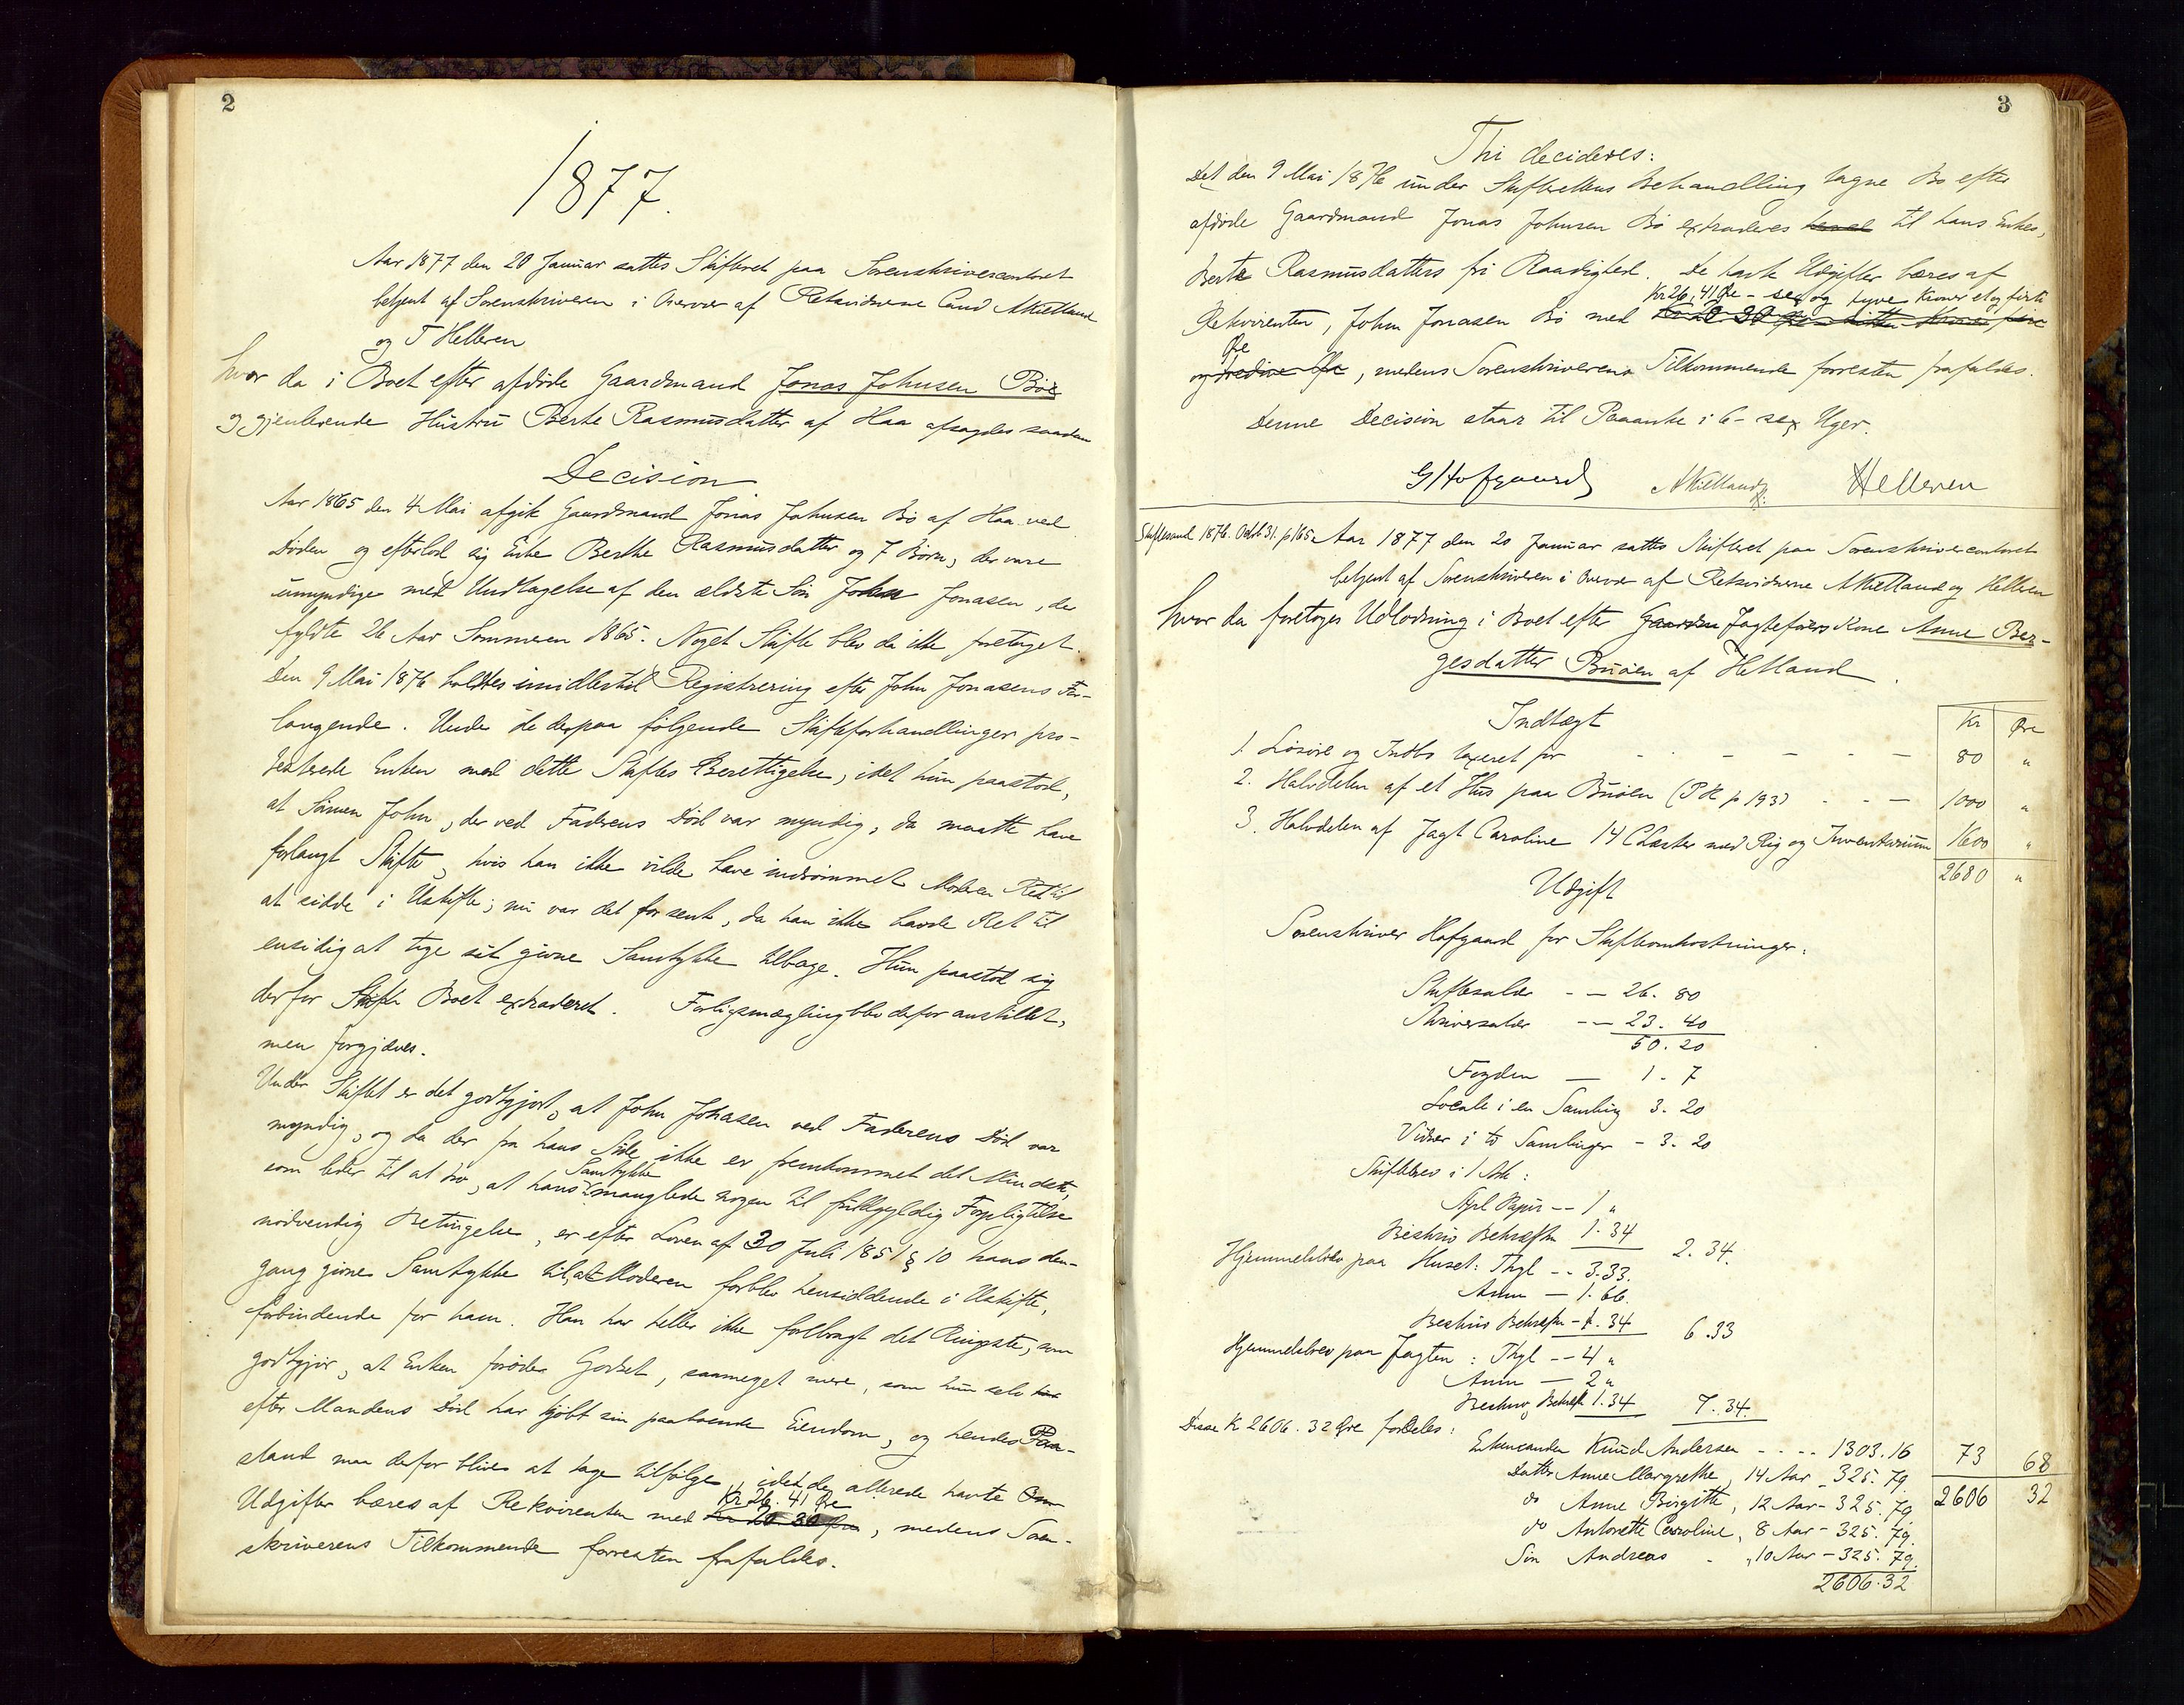 2
1877.
Aar 1877 den 20 Januar sattes Skifteret paa Sorenskrivercontoret
betjent af Sorenskriveren i Overvær af Retsvidnerne Cand AKielland
og T Helleren
hvor da i Boet efter afdøde Gaardmand Jonas Johnsen Bø
og gjenlevende Hustru Berte Rasmusdatter af Haa afsagdes saadan
Decision
Aar 1865 den 4 Mai afgik Gaardmand Jonas Johnsen Bø af Haa ved
Døden og efterlod sig Enke Berthe Rasmusdatter og 7 Børn, der vare
umyndige med Undtagelse af den ældste Søn John Jonasen, der
fyldte 26 Aar Sommeren 1865. Noget Skifte blev da ikke foretaget.
Den 9 Mai 1876 holdtes imidlertid Registrering efter John Jonasens For-
langende. Under de derpaa følgende Skifteforhandlinger pro-
testerede Enken mod dette Skiftes Berettigelse, idet hun paastod,
at Sønnen John, der ved Faderens Død var myndig, da maatte have
forlangt Skifte, hvis han ikke vilde have indrømmet Moderen Ret til
at sidde i Uskifte; nu var det for sent, da han ikke havde Ret til
ensidig at tage sit givne Samtykke tilbage. Hun paastod sig
derfor Boet extraderet. Forligsmægling blev derfor anstillet,
men forgjæves.
Under Skiftet er det godtgjort, at John Jonasen ved Faderens Død var
myndig, og da der fra hans Side ikke er fremkommet det Mindste,
som leder til at tro, at hans Samtykke manglede nogen til fuldgyldig Forpligtelse
nødvendig Betingelse, er efter Loven af 30 Juli 1851 § 10 hans den-
gang givne Samtykke til, at Moderen forblev hensiddende i Uskifte,
forbindende for ham. Han har heller ikke forebragt det Ringeste, som
godtgjør, at Enken forøder Godset, saameget mere, som hun selv
efter Mandens Død har kjøbt sin paaboende Eiendom, og hendes Paa-
stand maa derfor blive at tage tilfølge, idet de allerede havte
Udgifter bæres af Rekvirenten med Kr 26. 41 Øre, medens Soren-
skriverens Tilkommende forresten frafaldes.
3
Thi decideres:
Det den 9 Mai 1876 under Skifterettens Behandling tagne Bo efter
afdøde Gaardmand Jonas Johnsen Bø extraderes til hans Enkes,
Berte Rasmusdatters fri Raadighed. De havte Udgifter bæres af
Rekvirenten, John Jonasen Bø med Kr 26, 41 Øre - sex og tyve Kroner et og førti
Øre, medens Sorenskriverens Tilkommende forresten frafaldes.
Denne Decision staar til Paaanke i 6 - sex Uger.
G Hofgaard AKielland Helleren
Skiftesamb 1876. Octb 31. p 165. Aar 1877 den 20 Januar sattes Skifteret paa Sorenskrivercontoret
betjent af Sorenskriveren i Overvær af Retsvidnerne AKielland og Helleren
hvor da foretoges Udlodning i Boet efter Gaardm Jagtefører Kone Anne Ber-
gesdatter Buøen af Hetland.
Indtægt Kr Øre
1. Løsøre og Indbo taxeret for - - - - 80 "
2. Halvdelen af et Hus paa Buøen (P K p 193) - - - 1000 "
3. Halvdelen af Jagt Caroline 14 CLæster med Rig og Inventarium 1600 "
2680 "
Udgift
Sorenskriver Hofgaard for Skifteomkostninger:
Skiftesalær - - 26. 80
Skriversalær - - 23. 40
50. 20
Fogden - 1. 7
Locale i en Samling 3. 20
Vidner i to Samlinger - 3. 20
Skiftebrev i 1 Ark:
Stpl Papir - - 1 "
Beskriv Bekræftn 1.34 2. 34.
Hjemmelsbrev paa Huset: Thgl - - 3.33.
Anm - 1. 66.
Beskriv Bekræftn - 1. 34 6. 33
Hjemmelsbrev paa Jagten: Thgl - - 4 "
Anm - 2 "
Beskriv, Bekræft 1.34 7. 34.
73 68
Disse K 2606. 32 Øre fordeles: 2606 32
Enkemanden Knud Andersen - - - - 1303. 16
Datter Anne Margrethe, 14 Aar - 325. 79
do Anne Birgitte, 12 Aar - 325. 79
do Antonette Caroline, 8 Aar - 325. 79.
Søn Andreas - , 10 Aar - 325. 79.
2606. 32